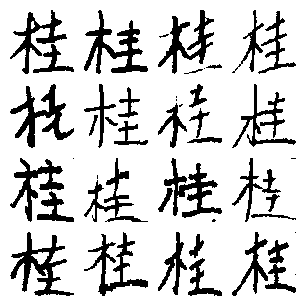 桂桂桂桂
桂桂桂桂
桂桂桂桂
桂桂桂桂